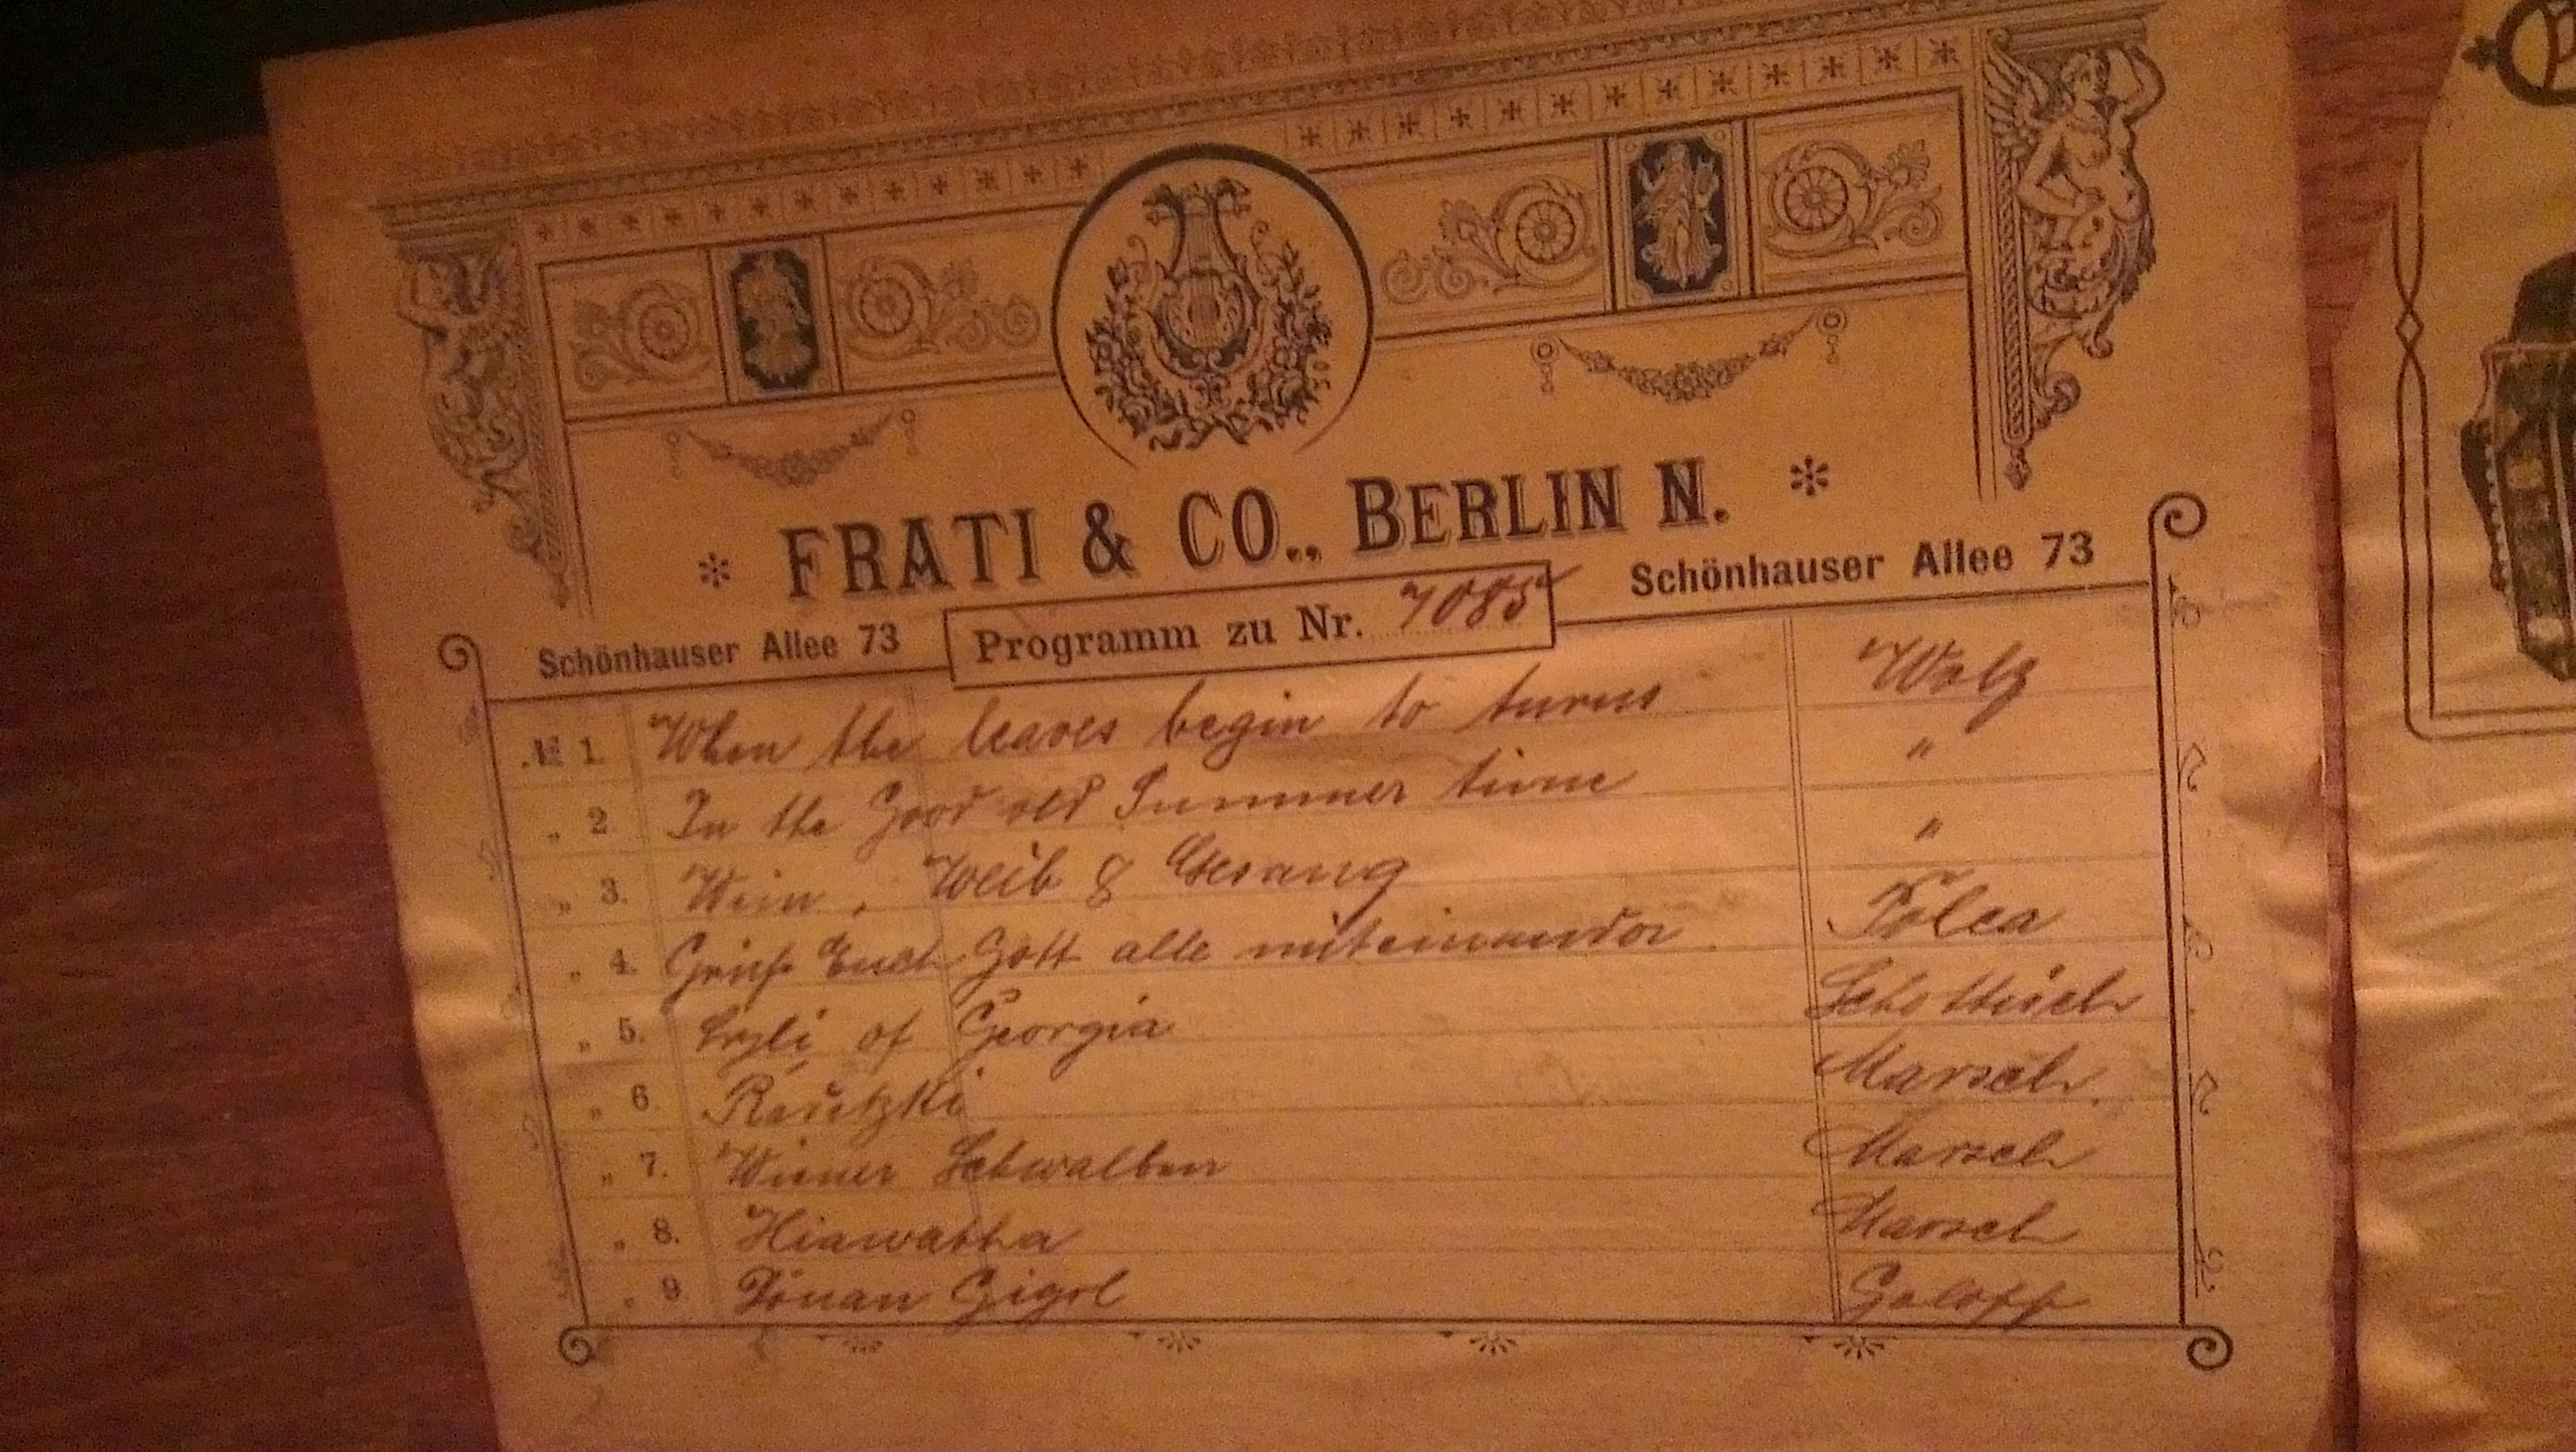 FRATI & CO., BERLIN N.
Schönhauser Allee 73
Programm zu Nr. 7085
Schönhauser Allee 73
№ 1. When the leaves begin to turns Walz
„ 2. In the Good old Summer time "
„ 3. Wein, Weib & Gesang "
„ 4. Grüß Euch Gott alle miteinander. Polca
„ 5. of Georgia Schottisch
„ 6. Marsch.
„ 7. Wiener Schwalben Marsch
„ 8. Hiawatha Marsch
„ 9 Gigol Galopp